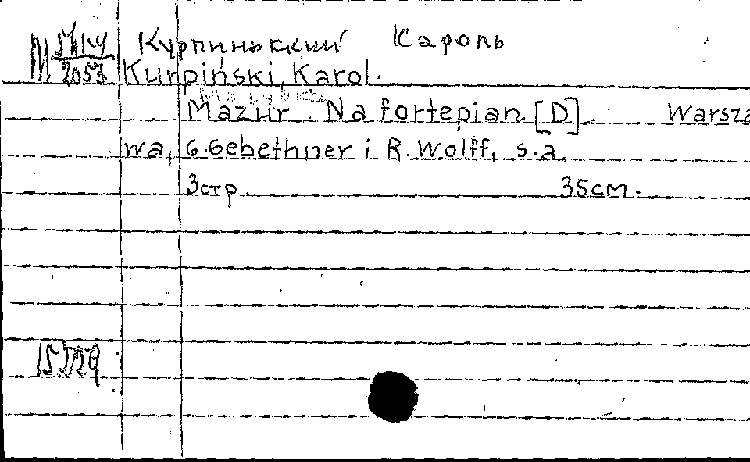 Курпиньский Кароль
M 2053
Kurpiński, Karol.
Mazur. Na fortepian. [D]. Warsza
wa, G. Gebethner i R. Wolff, s.a.
3стр. 35см.